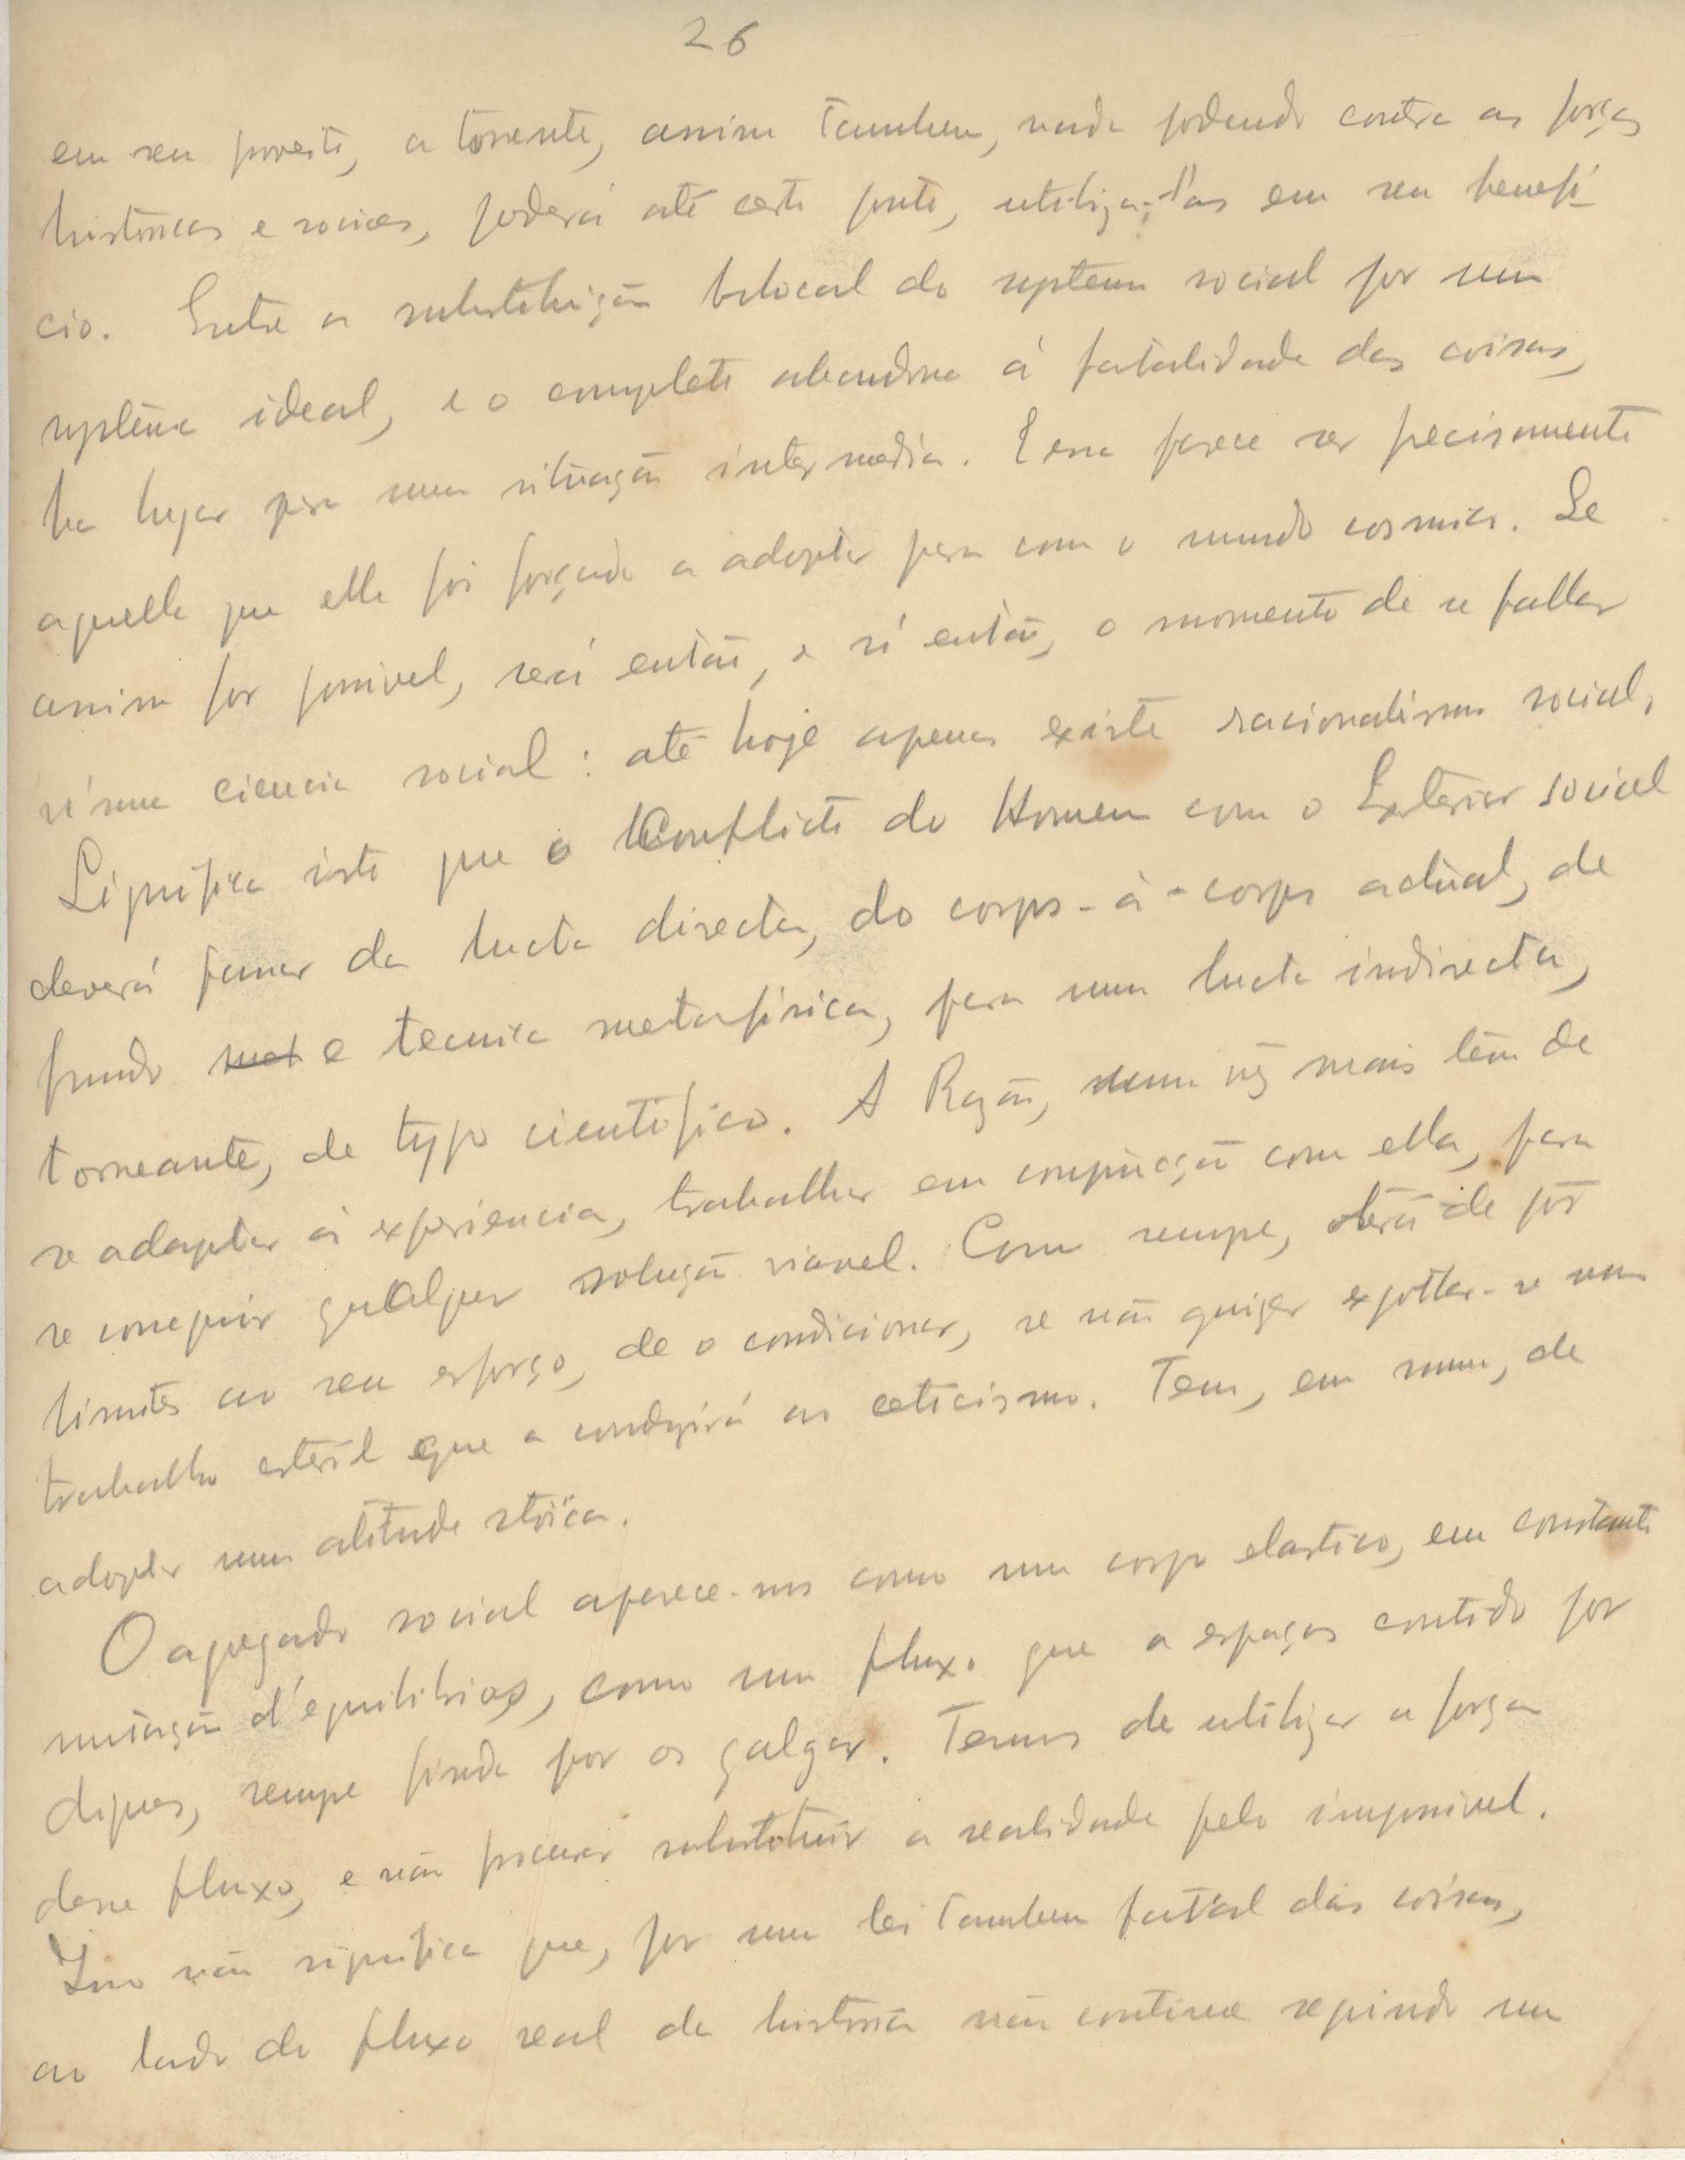 26
em seu proveito, a torrente, assim tambem, nada podendo contra as forças
historicas e sociaes, poderá até certo ponto, utiliza-l'as em seu benefi-
cio. Entre a substituição brutal do systema social por um
systema ideal, e o completo abandono á fatalidade das coisas,
ha lugar para uma situação intermedia. Essa parece ser precisamente
aquella que elle foi forçado a adoptar para com o mundo cosmico. Se
assim for possivel, será então, e só então, o momento de se fallar
n'uma ciencia social: até hoje apenas existe racionalismo social.
Significa isto que o Conflicto do Homem com o Exterior social
deverá passar da lucta directa, do corpo-à-corpo actual, de
fundo e tecnica metafisica, para uma lucta indirecta,
torneante, de typo cientifico. A Razão, uma vez mais têm de
se adaptar á experiencia, trabalhar em conjugação com ella, para
se conseguir qualquer solução viavel. Como sempre, terá de pôr
limites ao seu esforço, de o condicionar, se não quizer exgottar-se num
trabalho esteril que a conduzirá ao ceticismo. Tem, em suma, de
adoptar uma atitude stoïca.
O agregado social aparece-nos como um corpo elastico, em constante
mutação d'equilibrios, como um fluxo que a espaços contido por
diques, sempre finda por os galgar. Temos de utilizar a força
desse fluxo, e não procurar substituir a realidade pelo impossivel.
Isso não significa que, por uma lei tambem fatal das coisas,
ao lado do fluxo real da historia não continue seguindo um